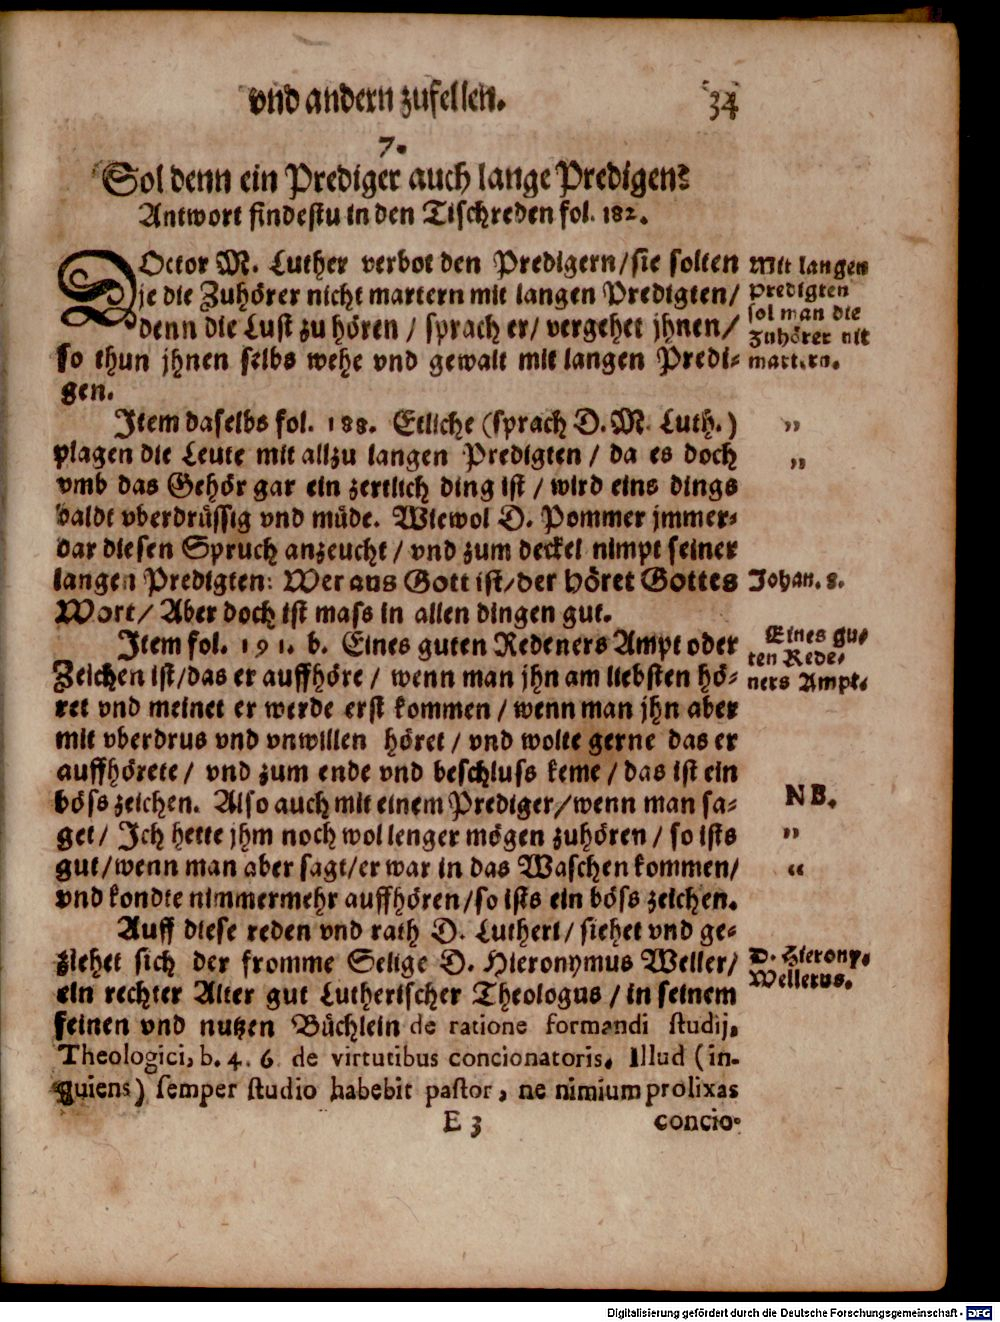 vnd andern zufellen. 34
7.
Sol denn ein Prediger auch lange Predigen?
Antwort findestu in den Tischreden fol. 182.
DOctor M. Luther verbot den Predigern/sie solten
je die Zuhörer nicht martern mit langen Predigten/
denn die Lust zu hören / sprach er/ vergehet jhnen/
so thun jhnen selbs wehe vnd gewalt mit langen Predi-
gen.
Mit langen
Predigten
sol man die
Zuhörer nit
martern.
Item daselbs fol. 188. Etliche (sprach D. M. Luth.)
plagen die Leute mit allzu langen Predigten / da es doch
vmb das Gehör gar ein zertlich ding ist / wird eins dings
baldt vberdrüssig vnd müde. Wiewol D. Pommer jmmer-
dar diesen Spruch anzeucht / vnd zum deckel nimpt seiner
langen Predigten: Wer aus Gott ist/der höret Gottes
Wort/ Aber doch ist mass in allen dingen gut.
„
„
Johan. 8.
Item fol. 191. b. Eines guten Redeners Ampt oder
Zeichen ist/das er auffhöre / wenn man jhn am liebsten hö-
ret vnd meinet er werde erst kommen / wenn man jhn aber
mit vberdrus vnd vnwillen höret / vnd wolte gerne das er
auffhörete/ vnd zum ende vnd beschluss keme / das ist ein
böss zeichen. Also auch mit einem Prediger/wenn man sa-
get/ Ich hette jhm noch wol lenger mögen zuhören / so ists
gut/wenn man aber sagt/er war in das Waschen kommen/
vnd kondte nimmermehr auffhören/so ists ein böss zeichen.
Eines gu-
ten Rede-
ners Ampt.
NB.
„
“
Auff diese reden vnd rath D. Lutheri/ siehet vnd ge-
ziehet sich der fromme Selige D. Hieronymus Weller/
ein rechter Alter gut Lutherischer Theologus / in seinem
feinen vnd nutzen Büchlein de ratione formandi studij,
Theologici, b. 4. 6. de virtutibus concionatoris. Illud (in-
quiens) semper studio habebit pastor, ne nimium prolixas
D. Hierony.
Wellerus.
E 3 concio-
Digitalisierung gefördert durch die Deutsche Forschungsgemeinschaft - DFG